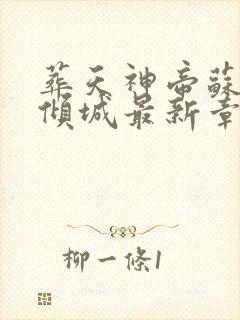 葬天神帝蘇
傾城最新章
柳一條1